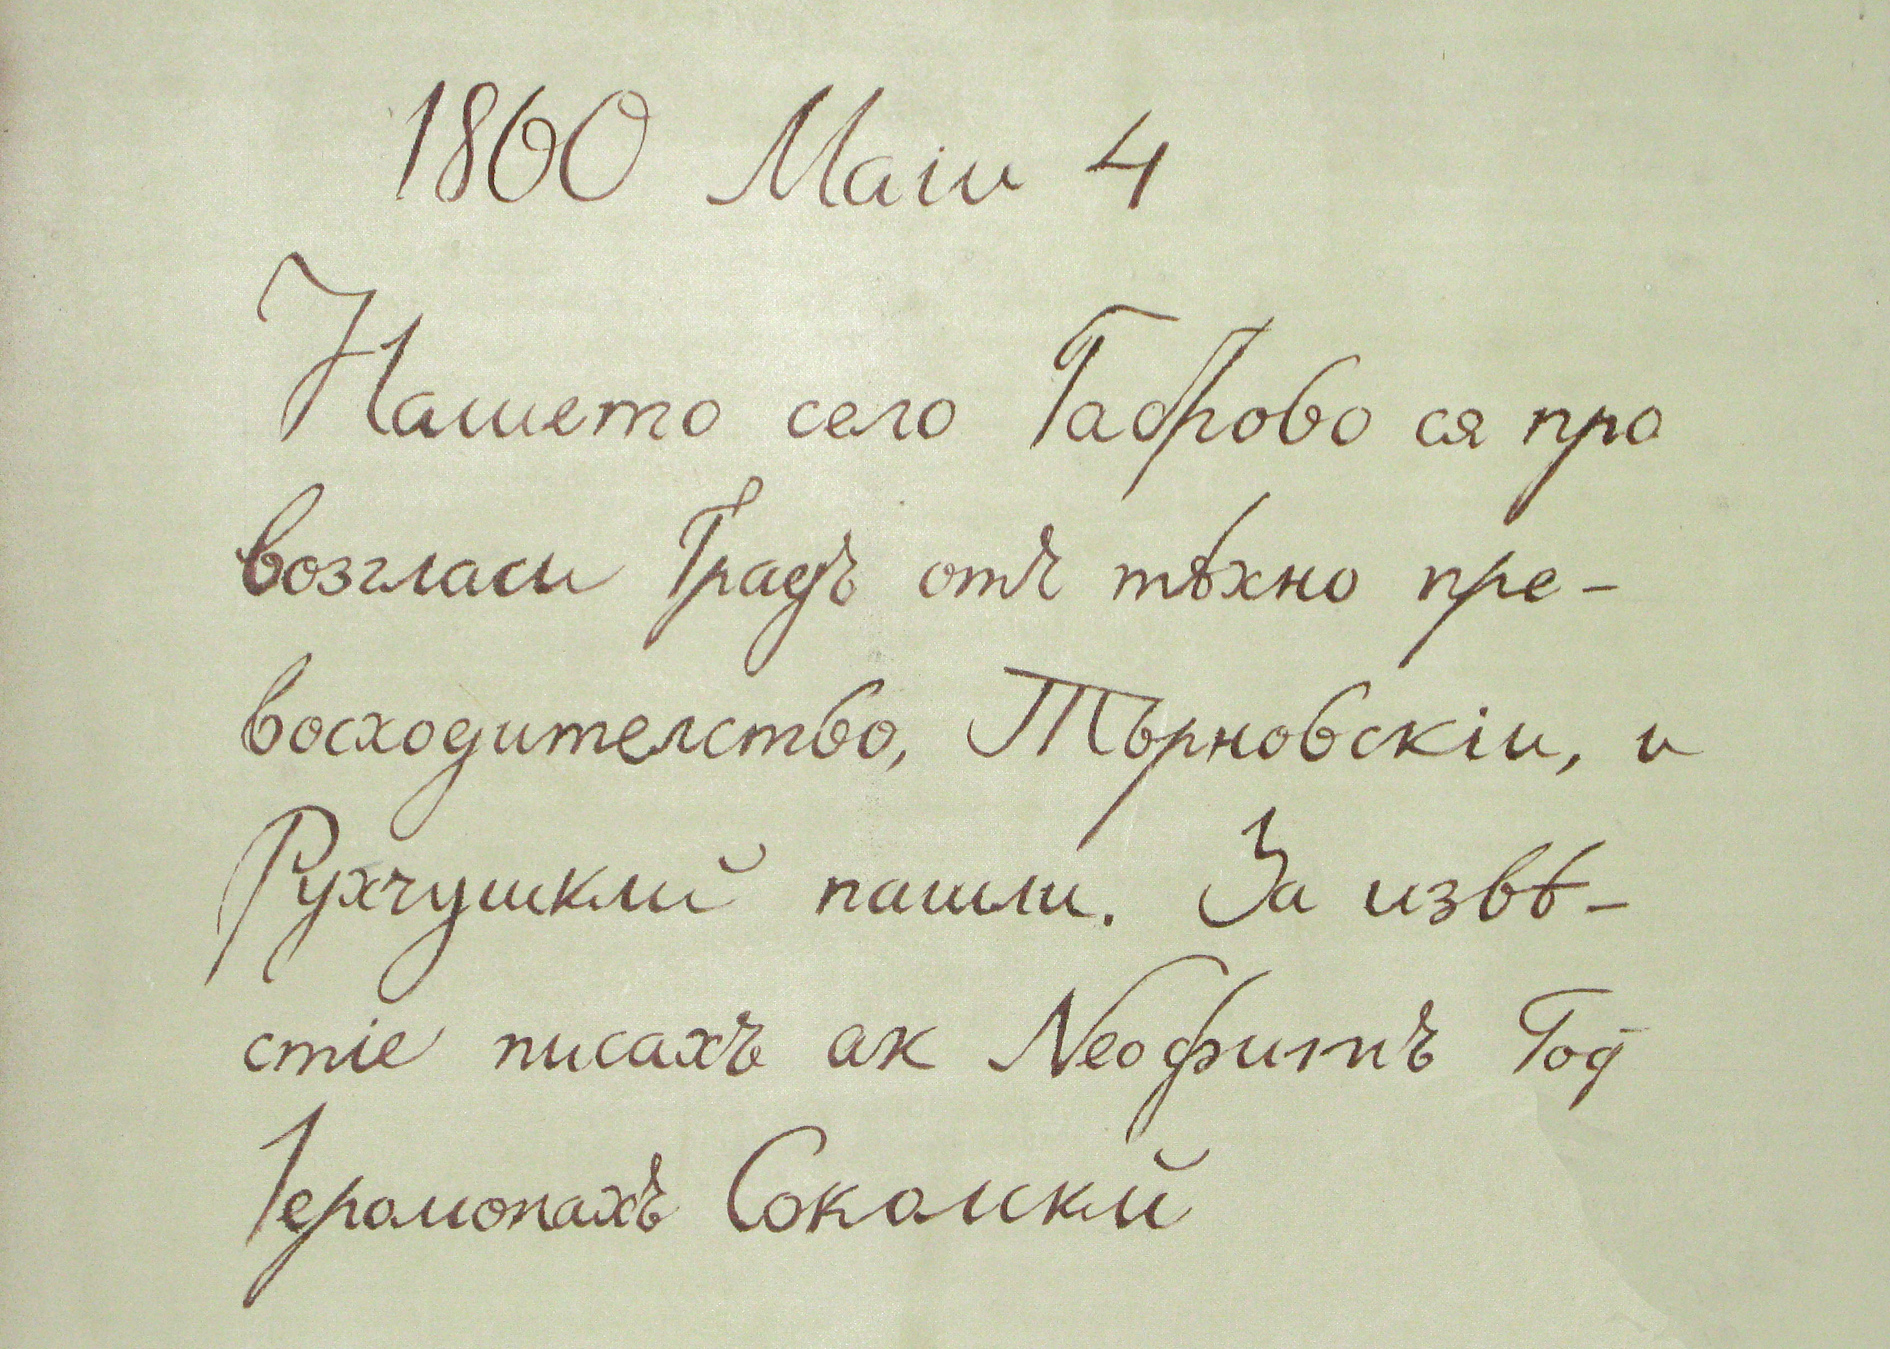 1860 Маіи 4
Нашето село Габрово ся про
возгласи Градъ отъ тѣхно пре-
восходителство, Тѣрновскіи, и
Рухчушклй пашли. За извѣ-
стіе писахъ ак Neoфитъ Год
Іеромонахъ Соколскй